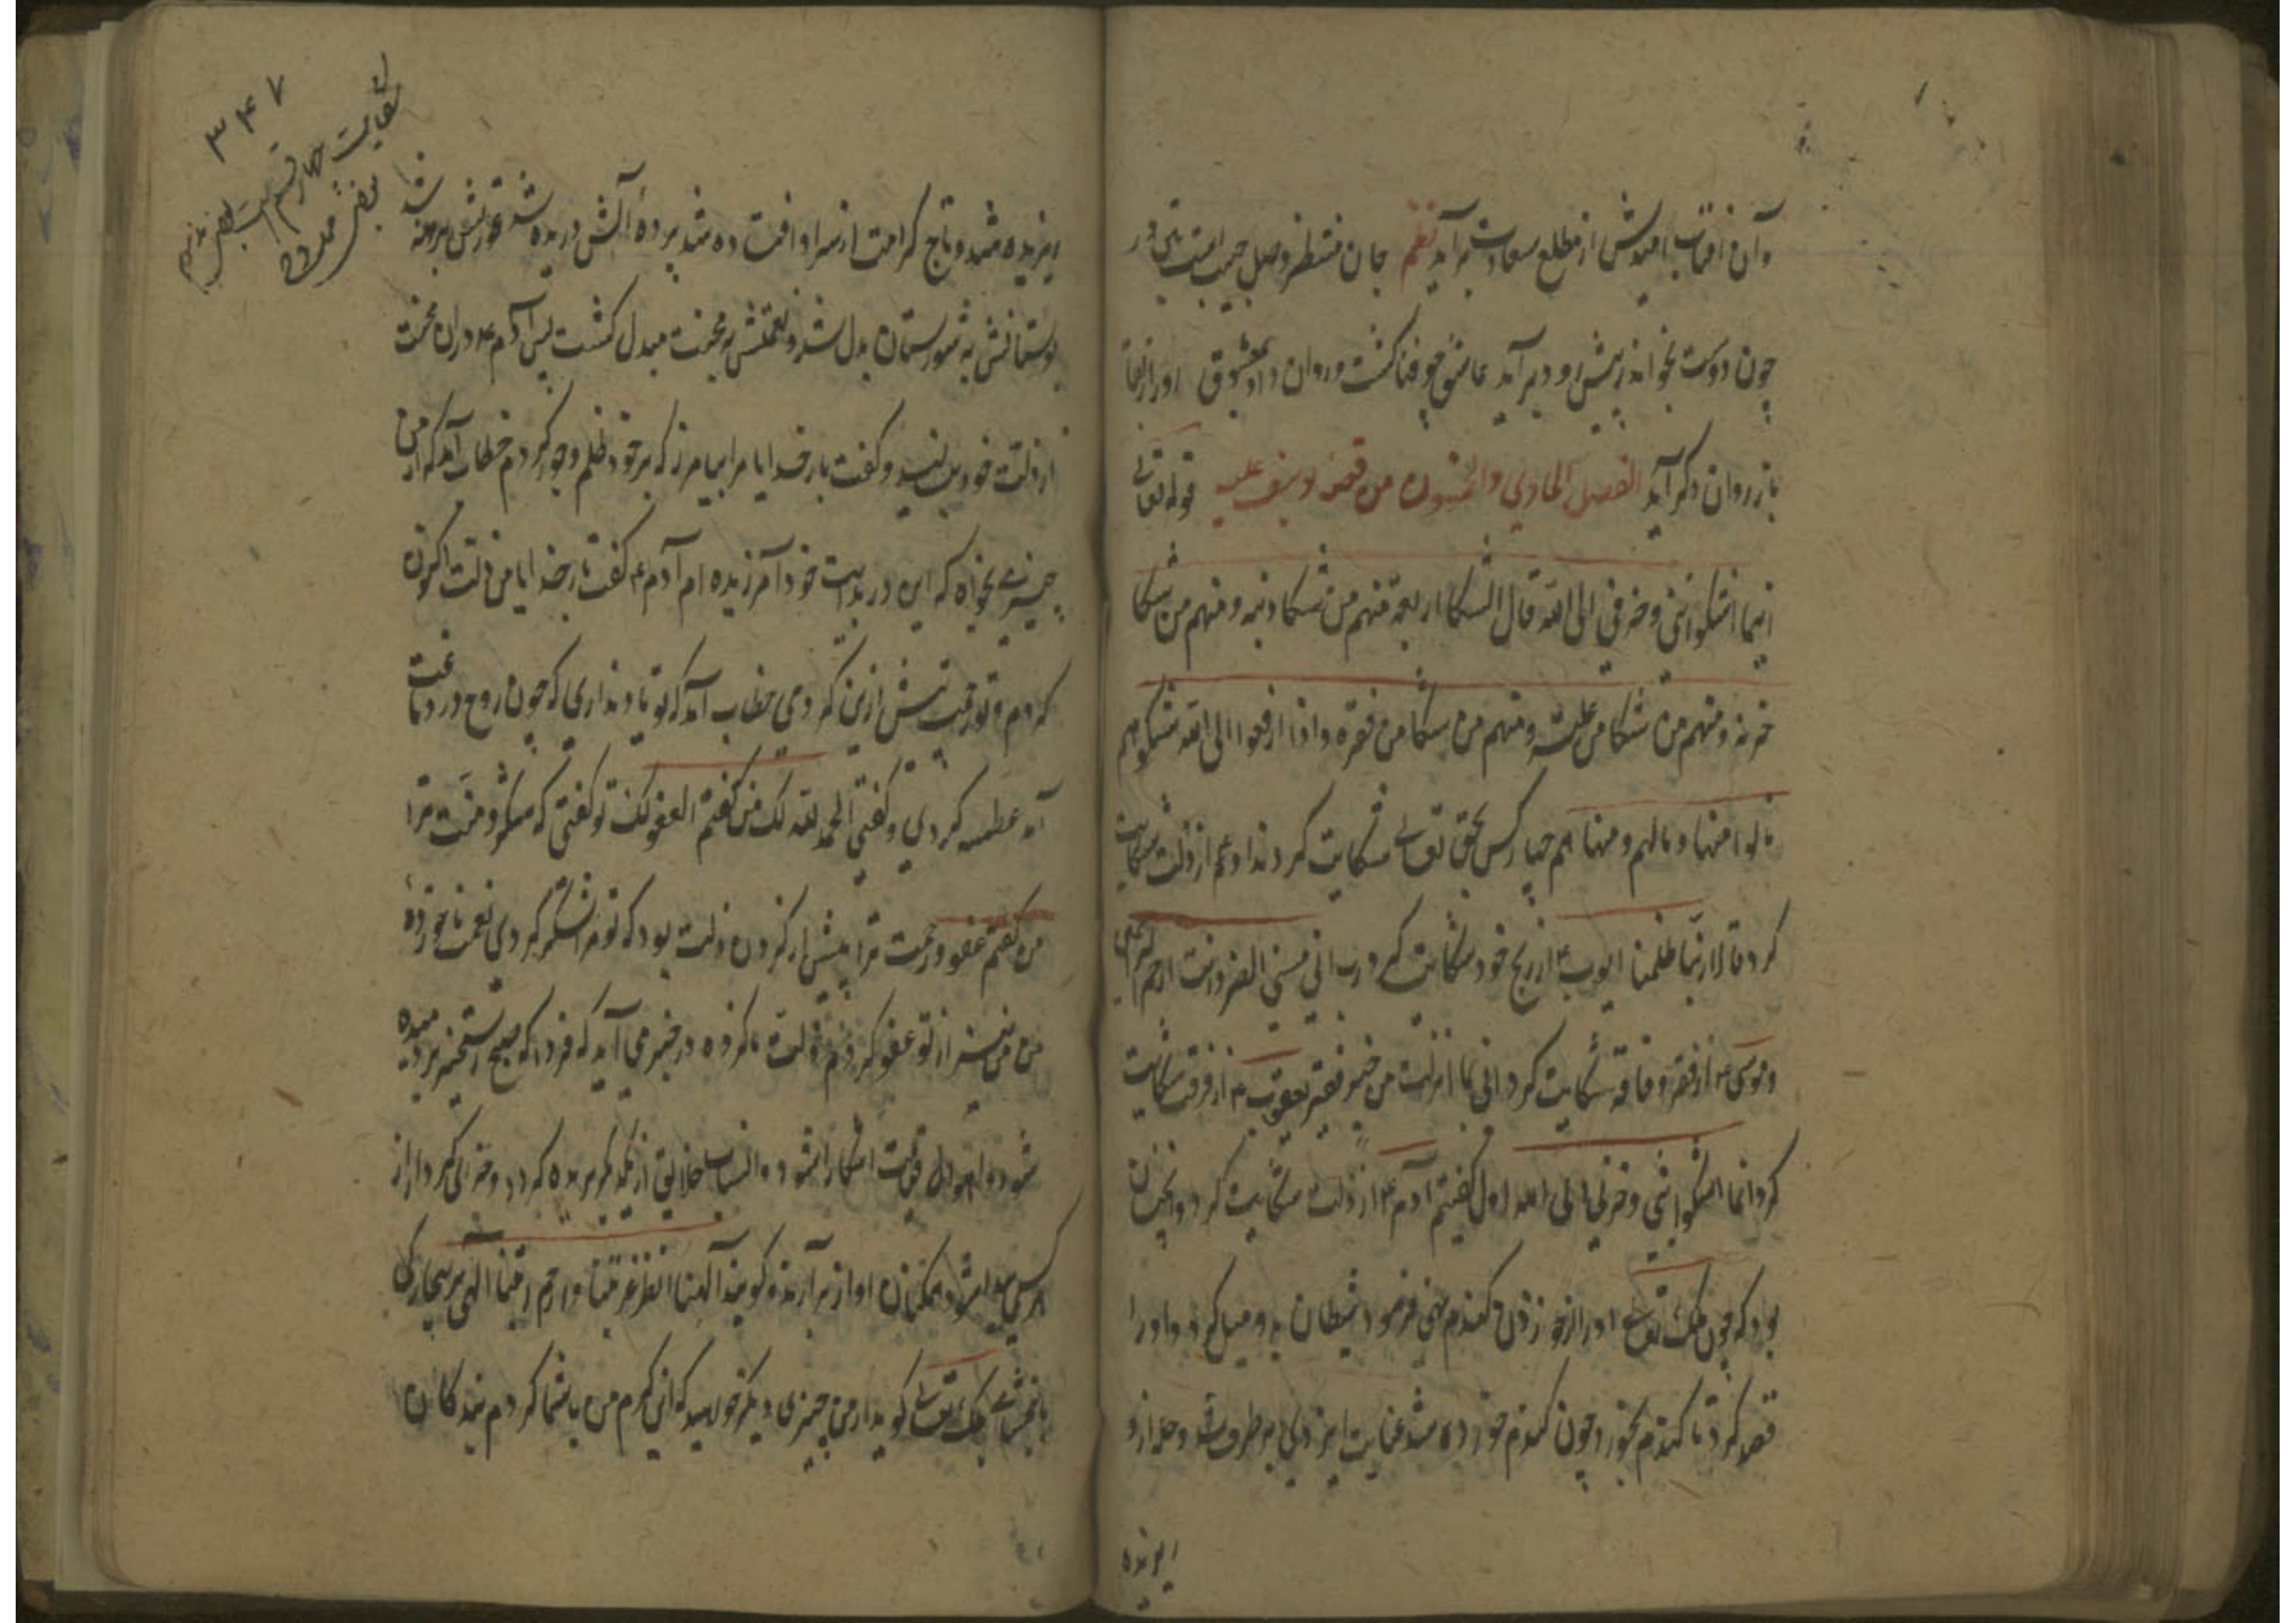 وآن آفتاب امیدش از مطلع سعادت برآید نظم جان منتظر وصل حبیب است در
چون دوست بخواند ز پیش رو دبرآید عاشق چو فنا گشت و روان داد بمعشوق او را
باز روان دگر آید الفصل الحادی والخمسون من قصه یوسف علیه قوله تعالی
انما اشکوا بثی وحزنی الی الله قال الشکا اربعة منهم من شکا ذنبه ومنهم من شکا
حزنه ومنهم من شکا من علته ومنهم من شکا من فقره واذا رفعوا الی الله شکوهم
نالوا منها ومنها هم چهار کس بحق تعالی شکایت کردند آدم از زلت شکایت
کرد قالا ربنا ظلمنا ایوب از رنج خود شکایت کرد رب انی مسنی الضر وانت ارحم الراحمین
وموسی از فقر و فاقه شکایت کرد انی لما انزلت من خیر فقیر یعقوب از فرقت شکایت
کرد انما اشکوا بثی وحزنی الی الله اول گفتیم آدم از زلت شکایت کرد وانچنان
بود که چون ملک تعالی او را از خوردن گندم نهی فرمود شیطان بدو میل کرد و او را
قصد کرد تا گندم بخورد چون گندم خورده شد عنایت ایزدی برطرف شد وحله ازو
پریده
پریده شد و تاج کرامت از سر او افتاده شد پرده آلش دریده شد عورتش برهنه شد
بوستانش به شورستان بدل شد و نعمتش به محنت مبدل گشت پس آدم دران محنت
از زلت خود بنالید وگفت بار خدایا مرا بیامرز که بر خود ظلم وجور کردم خطاب آمد که از من
چیزی بخواه که این در بدایت خود آمرزیده ام آدم گفت بار خدایا من زلت اکنون
کردم و تو رحمت پیش ازین کردی خطاب آمد که تو یاد نداری که چون روح در دماغت
آمد عطسه کردی وگفتی الحمد لله لک من گفتم العفو لک تو گفتی که شکر و منت ترا
من گفتم عفو و رحمت ترا پیش از کردن زلت بود که تو مرا شکر کردی نعمت ناخورده
من نیز از تو عفو کردم زلت ناکرده در خبر می آید که فردا که صبح رستخیز بر دمیده
شود و اهوال قیامت آشکارا شود و انساب خلایق از یکدیگر بریده گردد و حزنی کردار از
هر کسی پیدا شود همکنان آواز برآرند و گویند آلهنا اغفر غربتنا وارحم الهی بر بیچارگی
ما بخشای ملک تعالی گوید از من چیزی دیگر خواهید که این کرم من با شما کردم بندگان
۳۴۷
شکایت چهار قسم است